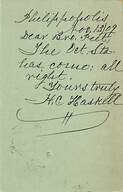 Philippopolis
Nov. 13/09
Dear Bro. Peet:
The Oct. Sta
has come: all
right.
Yours truly
H. C. Haskell